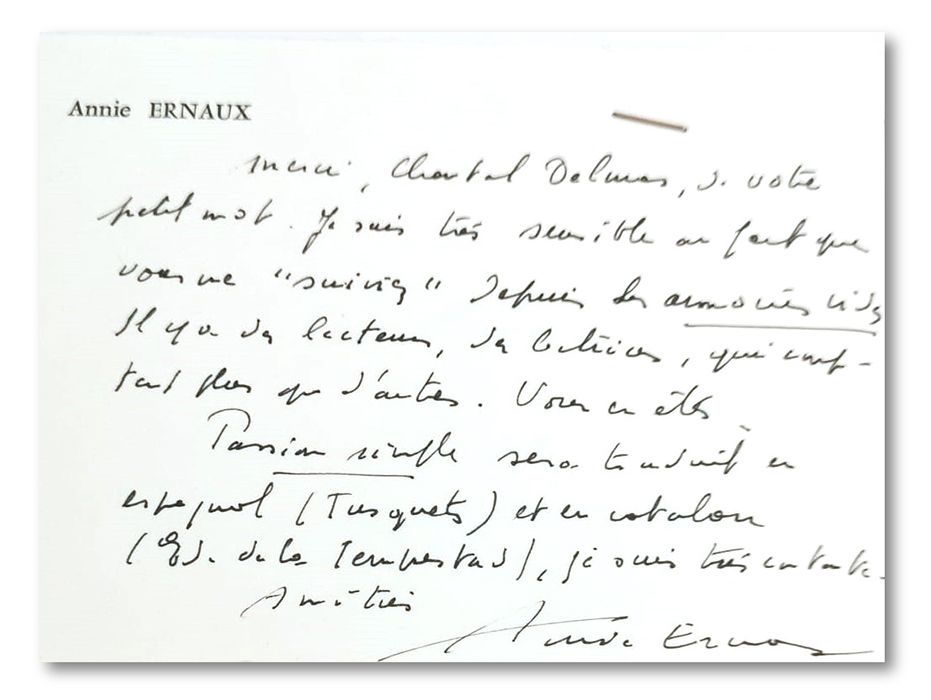 Annie ERNAUX
Merci, Chantal Delmas, de votre
petit mot. Je suis très sensible au fait que
vous me "suivez" depuis Les armoires vides
Il y a des lecteurs, des lectrices, qui comp-
tent plus que d'autres. Vous en êtes
Passion simple sera traduit en
espagnol (Tusquets) et en catalan
(Ed. de la Tempestad), je suis très contente.
Amitiés
Annie Ernaux